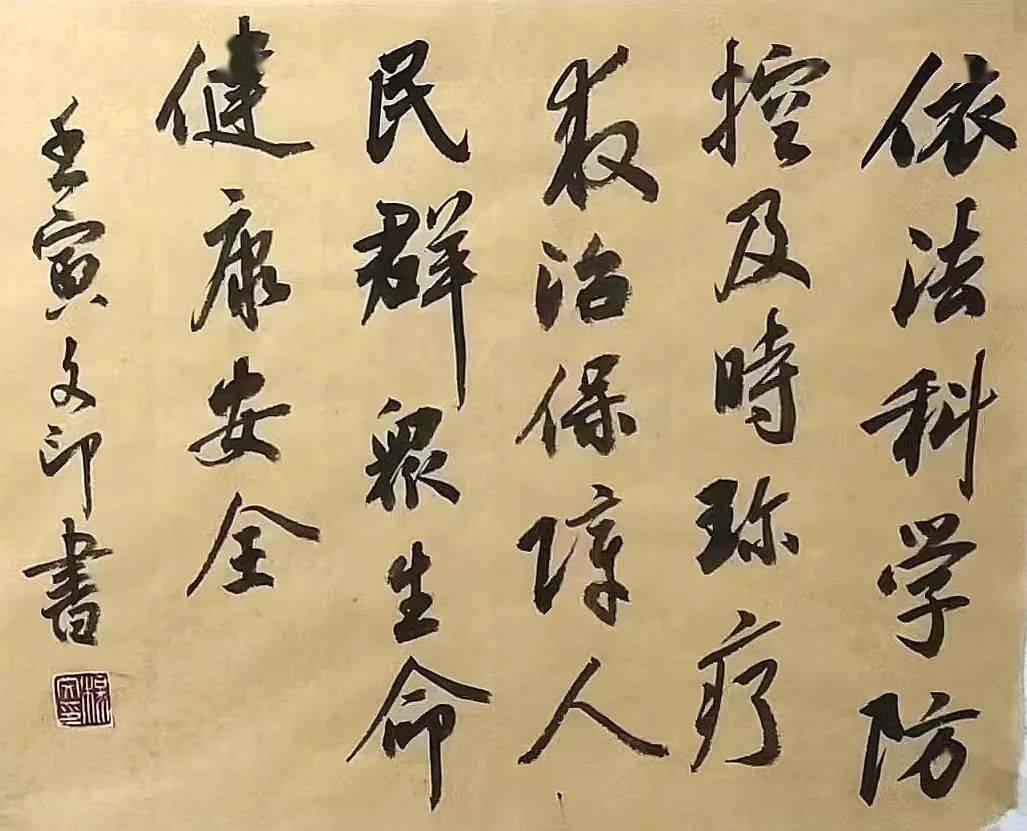 依法科学防
控及時珎疗
救治保障人
民群眾生命
健康安全
壬寅文印書